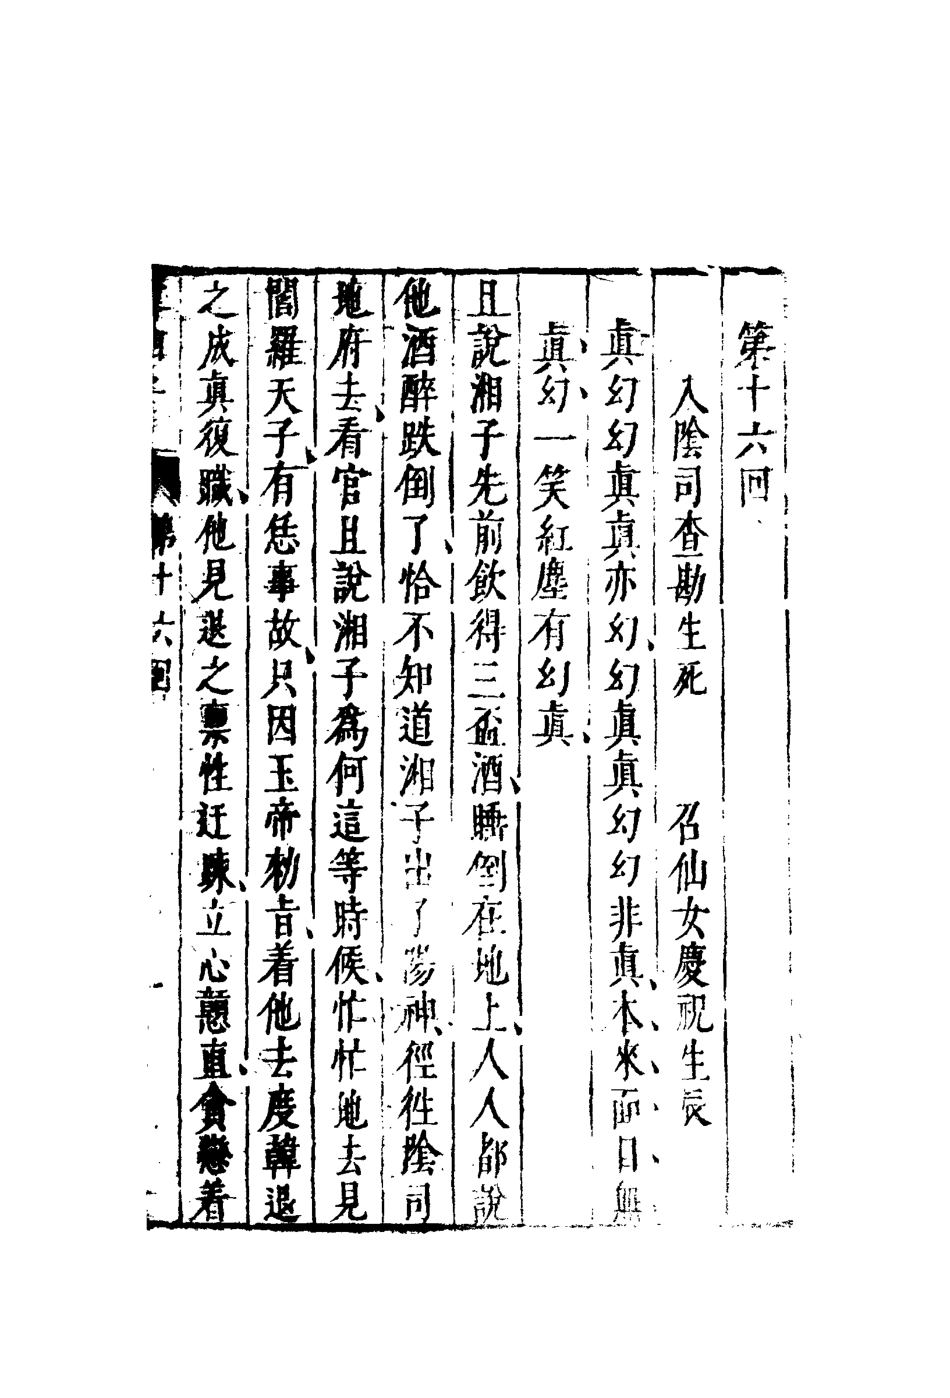 第十六回
入陰司查勘生死　召仙女慶祝生辰
眞幻幻眞眞亦幻、幻眞眞幻幻非眞、本、來、面、目、無
眞、幻、一笑紅塵有幻眞、
且說湘子先前飲得三盃酒、睡倒在地上、人人都說
他酒醉跌倒了、恰不知道湘子出了陽神、徑徃陰司
地府去、看官且說湘子爲何這等時候、忙忙地去見
閻羅天子、有恁事故、只因玉帝勑旨、着他去度韓退
之成眞復職、他見退之禀性迂疎、立心戇直、貪戀着
第十六回